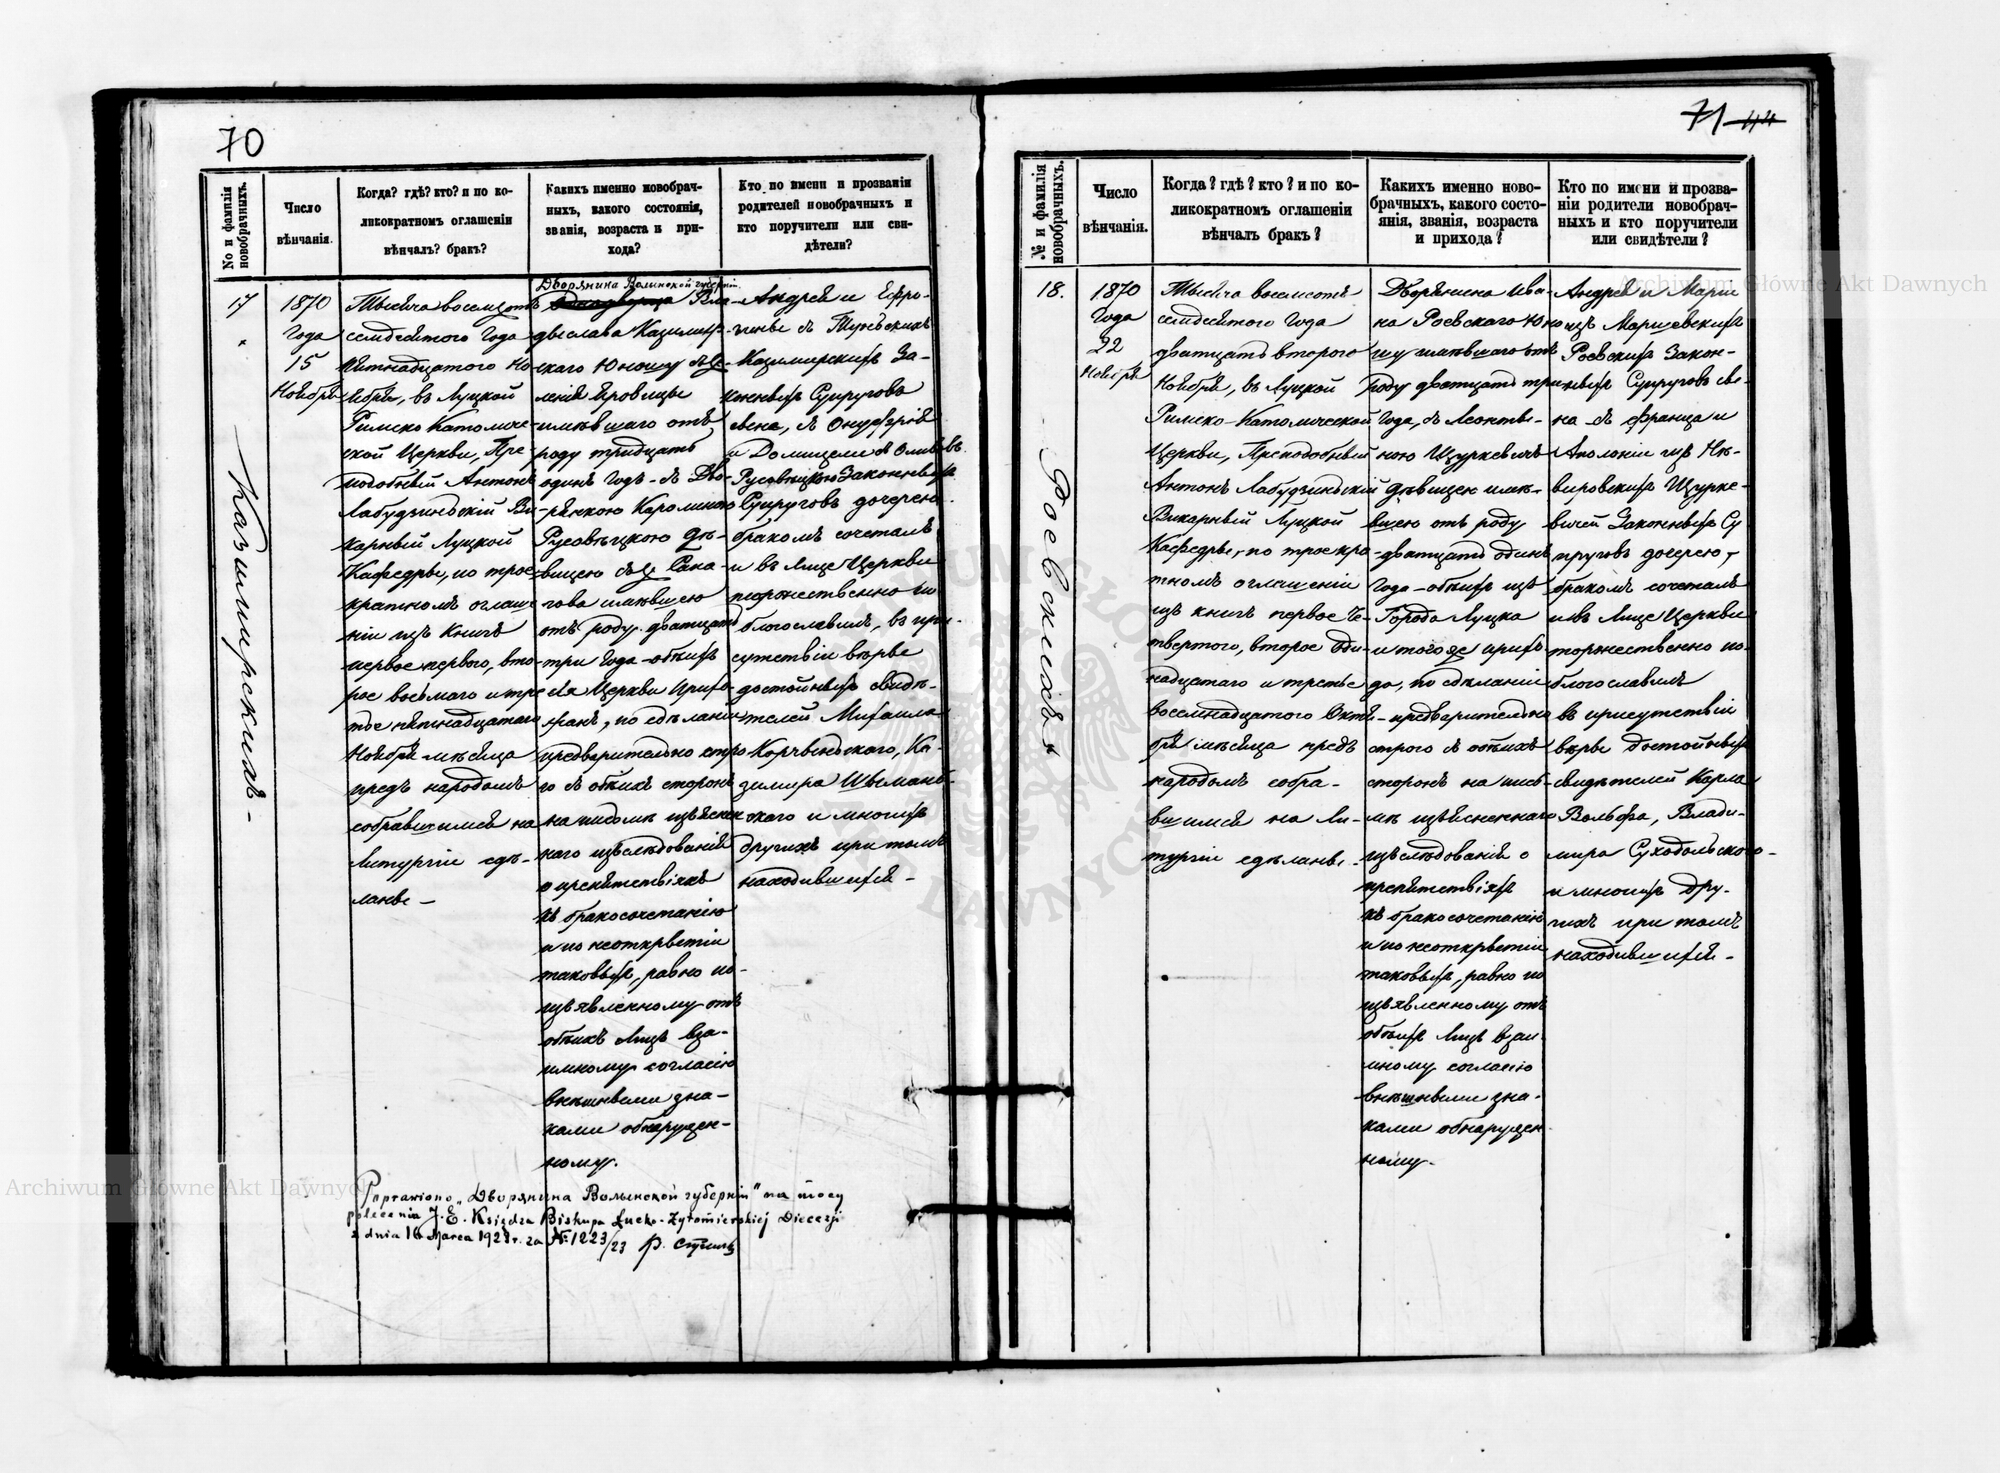 70
№ и фамилія новобрачныхъ.
Число вѣнчанія.
Когда? гдѣ? кто? и по ко-
ликократномъ оглашеніи
вѣнчалъ? бракъ?
Какихъ именно новобрач-
ныхъ, какого состоянія,
званія, возраста и при-
хода?
Кто по имени и прозваніи
родителей новобрачныхъ и
кто поручители или сви-
дѣтели?
17
Казимирскихъ.
1870
Года
15
Ноября
Тысяча восемьсотъ
семдесятого Года
пятнадцатого Но-
ября, въ Луцкой
Римско Католиче-
ской Церкви, Пре-
подобный Антонъ
Лабудзиньскій Ви-
карный Луцкой
Кафедры, по трое-
кратномъ оглаше-
ніи изъ книгъ
первое первого, вто-
рое восьмаго и тре-
тое пятнадцатаго
Ноября мѣсяца
предъ народомъ
собравшимся на
Литургіи сдѣ-
ланы —
Дворянина Волынской губерніи
Однодворца Вла-
дыслава Казимир-
скаго Юношу
имѣвшаго отъ
роду тридцать
одинъ Годъ - съ Дво-
рянкою Каролиною
Русовѣцкою Дѣ-
вицею
имѣвшею
отъ роду двадцать
три Года - обоихъ
сея Церкви Прихо-
жанъ, по сдѣланіи
предварительно стро
го съ обоихъ сторонъ
на письмѣ изъяснен
ного изслѣдованія
о препятствіяхъ
къ бракосочетанію
и по неоткрытіи
таковыхъ, равно по-
изъявленному отъ
обоихъ Лицъ вза-
имному согласію
внѣшными зна-
ками обнаружен-
ному.
Андрея и Ефро-
зины съ Тунѣскихъ
Казимирскихъ За-
конныхъ Супруговъ
сына, съ Онуфрія
и Домицели съ
Русовѣцкихъ Законныхъ
Супруговъ дочерею
бракомъ сочеталъ
и въ Лице Церкви
торжественно
благославилъ, въ при-
сутствіи вѣры
достойныхъ свидѣ-
телей Михаила
Корчиньского, Ка-
зимира Шиманъ-
скаго и многихъ
другихъ при томъ
находившихся -
Poprawiono „Дворянина Волынской губерніи" na mocy
polecenia J. E. Księdza Biskupa Łucko-Żytomierskiej Diecezji
z dnia 16 Marca 1923 r. za № 1223/23
71 44
№ и фамилія новобрачныхъ.
Число вѣнчанія.
Когда? гдѣ? кто? и по ко-
ликократномъ оглашеніи
вѣнчалъ бракъ?
Какихъ именно ново-
брачныхъ, какого состо-
янія, званія, возраста
и прихода?
Кто по имени и прозва-
ніи родители новобрач-
ныхъ и кто поручители
или свидѣтели?
18.
Роевскихъ
1870
Года
22
Ноября
Тысяча восемсотъ
семдесятого Года
двадцать второго
Ноября, въ Луцкой
Римско-Католической
Церкви, Преподобный
Антонъ Лабудзиньскій
Викарный Луцкой
Кафедры, по троекра-
тномъ оглашеніи
изъ книгъ первое че-
твертого, второе оди-
надцатаго и третье
восемнадцатого Октя-
бря мѣсяца предъ
народомъ собра-
вшимся на Ли-
тургіи сдѣланы.
Дворянина Ива-
на Роевскаго Юно
шу имѣвшаго отъ
роду двадцать три
Года, съ Леонты-
ною Щуркевичъ
Дѣвицею имѣ-
вшею отъ роду
двадцать одинъ
Года - обоихъ изъ
Города Луцка
и тогоже прихо-
да, по сдѣланіи
предварительно
строго съ обоихъ
сторонъ на пись-
мѣ изъясненнаго
изслѣдованія о
препятствіяхъ
къ бракосочетанію
и по неоткрытіи
таковыхъ, равно по
изъявленному отъ
обоихъ Лицъ взаи-
мному согласію
внѣшными зна-
ками обнаружен-
ному.
Андрея и Маріи
изъ Маршевскихъ
Роевскихъ Закон-
ныхъ Супруговъ сы-
на съ Франца и
Аполоніи изъ Нѣ-
вировскихъ Щурке-
вичей Законныхъ Су
пруговъ дочерею,
бракомъ сочеталъ
и въ Лице Церкви
торжественно по-
благославилъ
въ присутствіи
вѣры достойныхъ
свидѣтелей Карла
Вольфа, Влади-
мира Суходольского
и многихъ дру-
гихъ при томъ
находившихся -
Archiwum Główne Akt Dawnych
Archiwum Główne Akt Dawnych